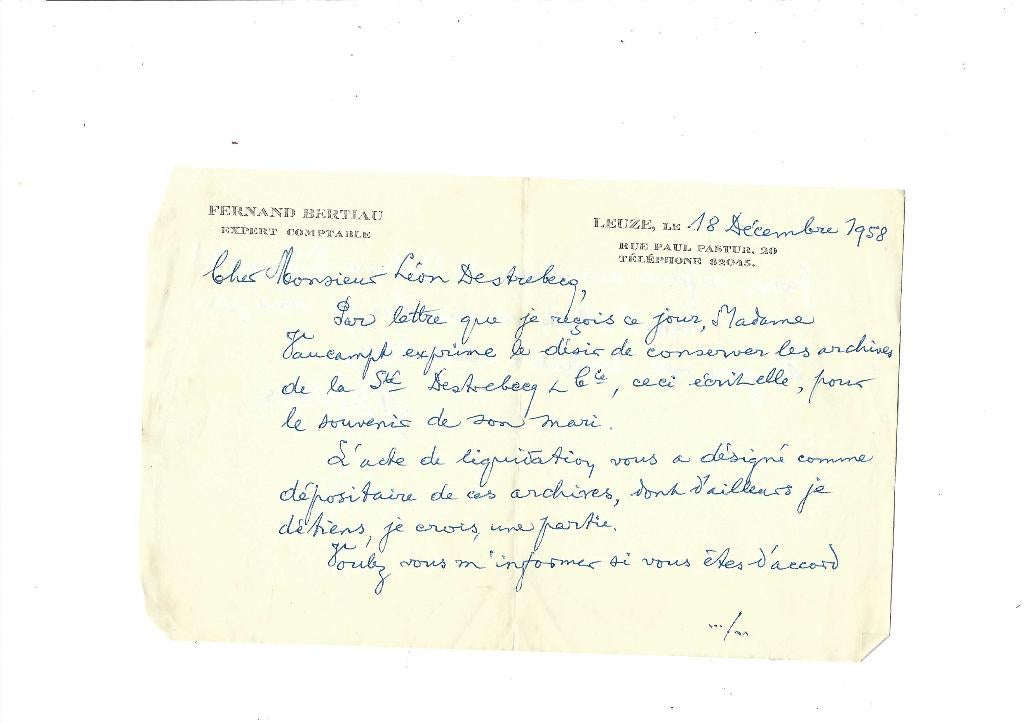 FERNAND BERTIAU
EXPERT COMPTABLE
LEUZE, LE 18 Décembre 1958
RUE PAUL PASTUR, 20
TÉLÉPHONE 82045.
Cher Monsieur Léon Destrebecq,
Par lettre que je reçois ce jour, Madame
Vaucampt exprime le désir de conserver les archives
de la Sté Destrebecq & Cie, ceci écrit elle, pour
le souvenir de son mari.
L'acte de liquidation, vous a désigné comme
dépositaire de ces archives, dont d'ailleurs je
détiens, je crois, une partie.
Voulez vous m'informer si vous êtes d'accord
.../...